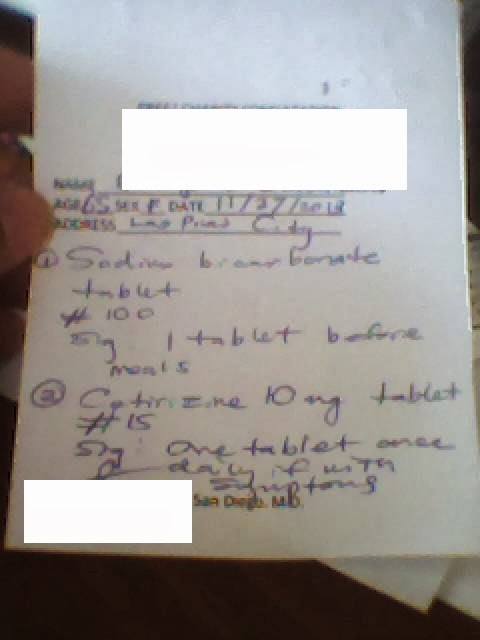 NAME
AGE 65 SEX F DATE 11/27/2018
ADDRESS Las Pinas City
① Sodium bicarbonate
tablet
# 100
Sig 1 tablet before
meals
② Cetirizine 10 mg tablet
# 15
Sig: One tablet once
daily if with
symptoms
San Diego, M.D.